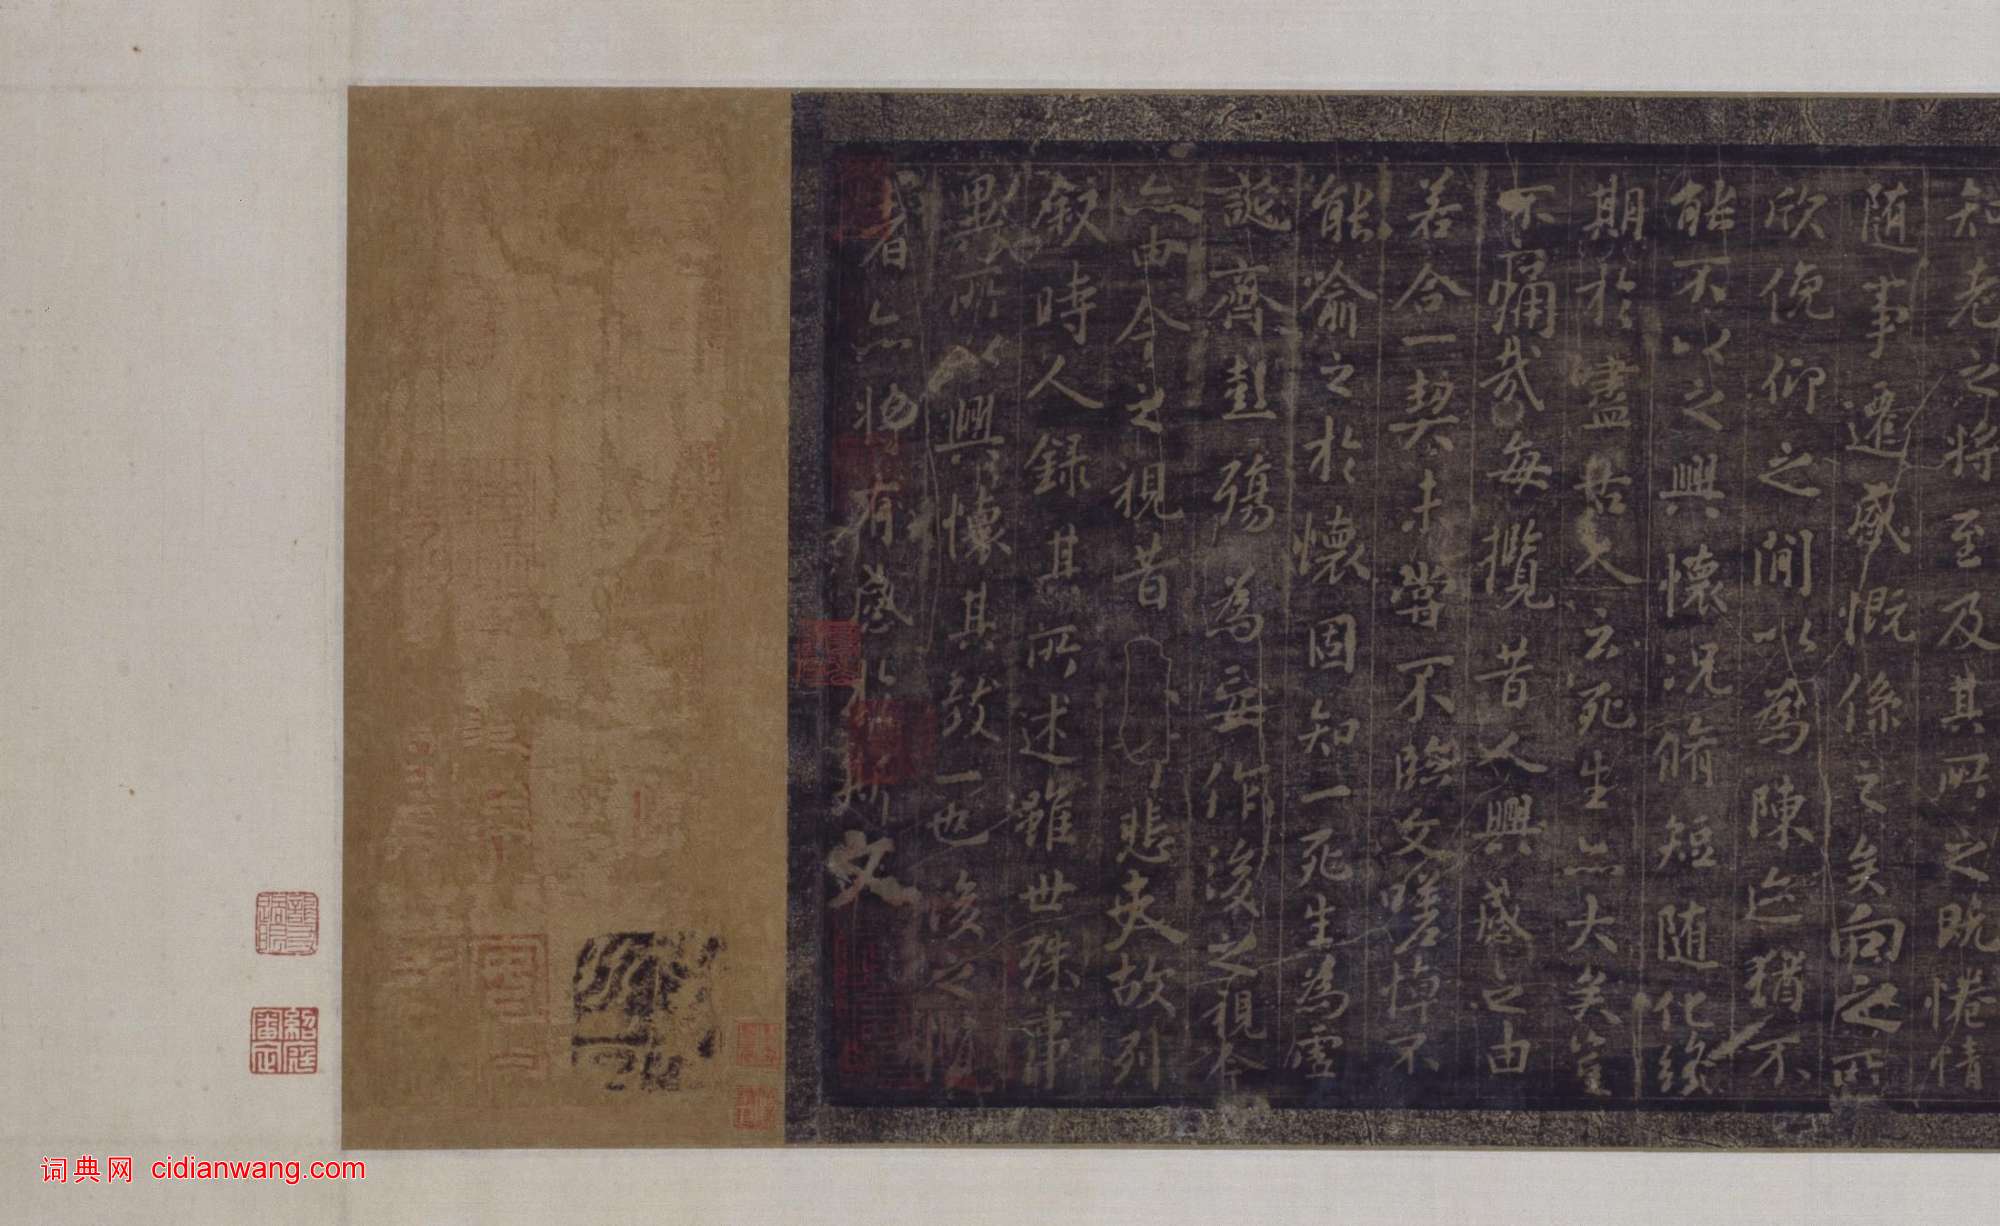 知老之将至及其所之既惓情
随事遷感慨係之矣向之所
欣俛仰之閒以為陳迹猶不
能不以之興懷况脩短随化終
期於盡古人云死生亦大矣豈
不痛哉每攬昔人興感之由
若合一契未嘗不臨文嗟悼不
能喻之於懷固知一死生為虛
誕齊彭殤為妄作後之視今
亦由今之視昔悲夫故列
叙時人録其所述雖世殊事
異所以興懷其致一也後之攬
者亦将有感於斯文
词典网 cidianwang.com